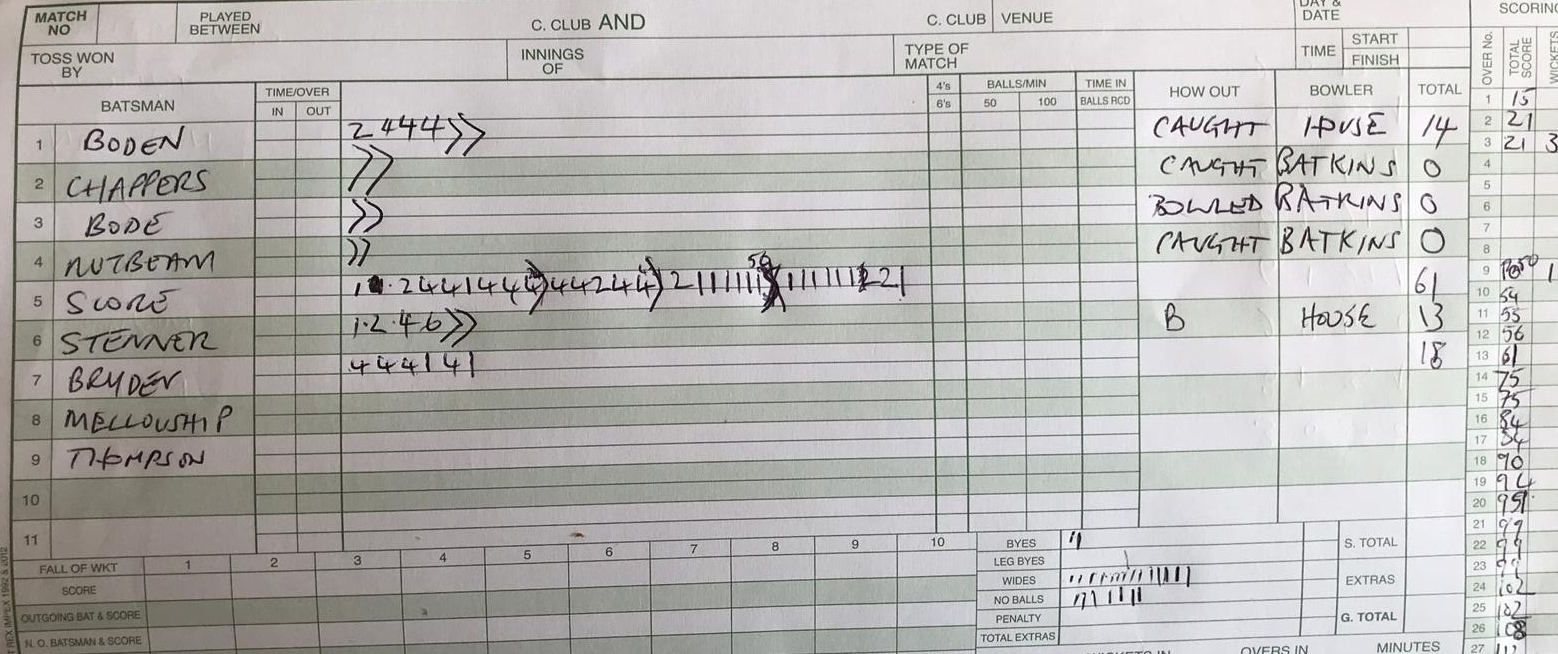 MATCH NO PLAYED BETWEEN C. CLUB AND C. CLUB VENUE DAY & DATE SCORING
TOSS WON BY INNINGS OF TYPE OF MATCH TIME START FINISH
BATSMAN TIME/OVER IN OUT 4's 6's BALLS/MIN 50 100 TIME IN BALLS RCD HOW OUT BOWLER TOTAL OVER No. TOTAL SCORE WICKETS
1 BODEN 2 4 4 4 >> CAUGHT HOUSE 14
2 CHAPPERS >> CAUGHT BATKINS 0
3 BODE >> BOWLED BATKINS 0
4 NUTBEAM >> CAUGHT BATKINS 0
5 SCORE 50 61
6 STENNER 1·2·4·6 >> B HOUSE 13
7 BRYDEN 4 4 4 1 4 1 18
8 MELLOWSHIP
9 THOMPSON
10
11
1 15
2 21
3 21 3
4
5
6
7
8
9 50 1
10 54
11 55
12 56
13 61
14 75
15 75
16 84
17 84
18 90
19 94
20 95
21 99
22 99
23 99
24 102
25 102
26 108
27
FALL OF WKT 1 2 3 4 5 6 7 8 9 10
SCORE
OUTGOING BAT & SCORE
N. O. BATSMAN & SCORE
BYES S. TOTAL
LEG BYES
WIDES EXTRAS
NO BALLS
PENALTY G. TOTAL
TOTAL EXTRAS
WICKETS IN OVERS IN MINUTES
TREX IMPEX 1992 & 2012